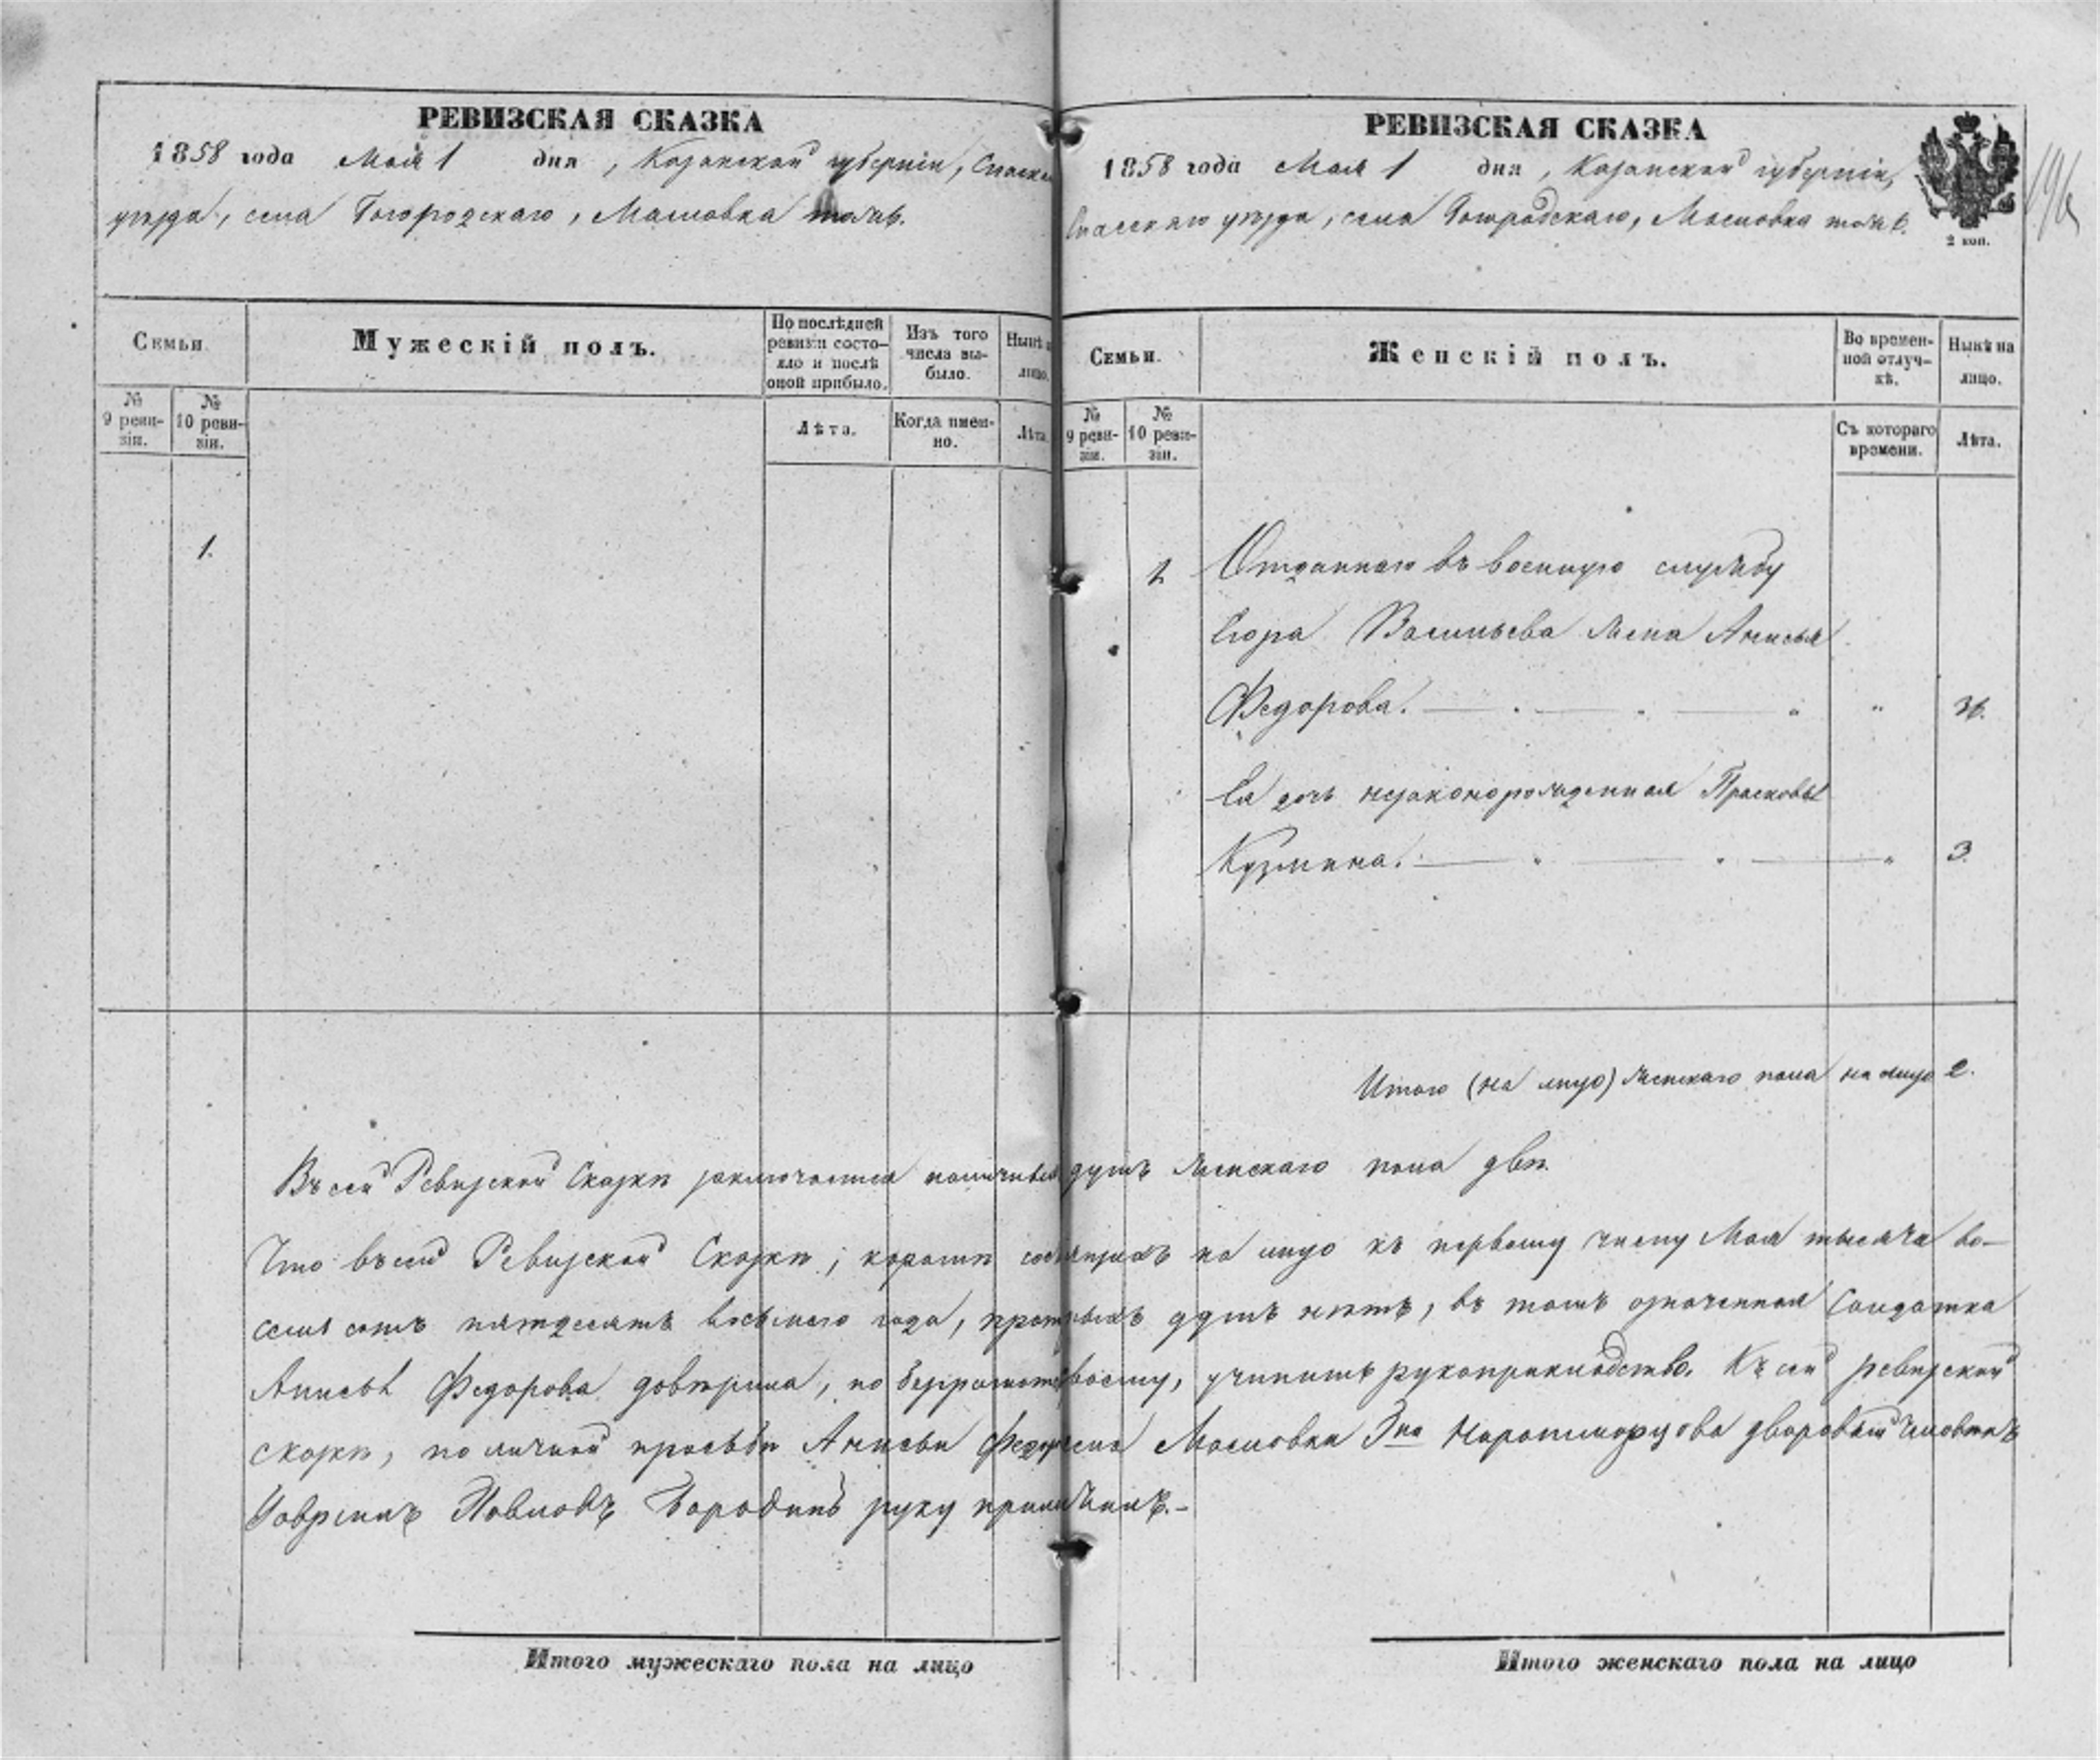 РЕВИЗСКАЯ СКАЗКА
1858 года Мая 1 дня, Казанской губерніи, Спаска
уѣзда, села Богородскаго, Масловка тожъ.
Семьи.
Мужескій полъ.
По послѣдней ревизіи состояло и послѣ оной прибыло.
Изъ того числа выбыло.
Нынѣ на лицо.
№ 9 ревизіи.
№ 10 ревизіи.
Лѣта.
Когда именно.
Лѣта.
1.
РЕВИЗСКАЯ СКАЗКА
1858 года Мая 1 дня, Казанской губерніи,
Спасскаго уѣзда, села Богородскаго, Масловка тожъ.
2 коп.
Семьи.
Женскій полъ.
Во временной отлучкѣ.
Нынѣ на лицо.
№ 9 ревизіи.
№ 10 ревизіи.
Съ котораго времени.
Лѣта.
1 Отданнаго въ военную службу
Егора Васильева жена Анисья
Федорова. 36.
Ея дочь незаконорожденная Прасковья
Кузмина. 3.
Итого (на лицо) женскаго пола на лицо 2.
Въ сей Ревизской Сказкѣ заключается наличныхъ душъ женскаго пола двѣ.
Что въ сей Ревизской Сказкѣ, кромѣ состоящихъ на лицо къ первому числу Мая тысяча во-
семь сотъ пятдесятъ восьмаго года, душъ нѣтъ, въ томъ означенная Солдатка
Анисья Федорова довѣрила, по безграмотству своему, учинить рукоприкладство. Къ сей ревизской
сказкѣ, по личной просьбѣ Анисьи Федоровой Масловка Гна дворовый человѣкъ
Павловъ Бородинъ руку приложилъ.-
Итого мужескаго пола на лицо
Итого женскаго пола на лицо